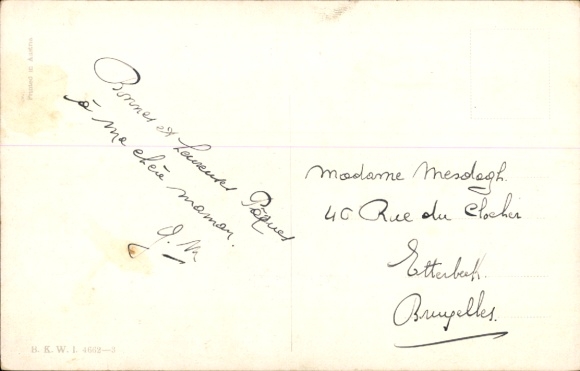 Printed in Austria
Bonnes et heureuses Pâques
à ma chère maman.
J. M
Madame Mesdagh.
40 Rue du Clocher
Etterbeek.
Bruxelles.
B. K. W. I. 4662—3